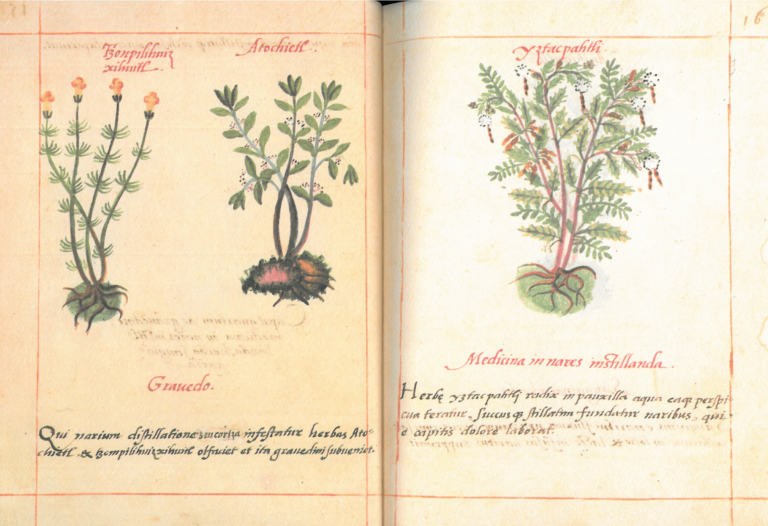 Tzonpilihuiz
xihuitl.
Atochietl.
Gravedo.
Qui narium distillatione seu coriza infestatur herbas Ato-
chietl & tzonpilihuizxihuitl olfaciet et ita gravedini subveniet.
16
yztacpahtli.
Medicina in nares instillanda.
Herbę yztacpahtli radix in pauxilla aqua eaq; perspi-
cua teratur. Succus q; stillatim fundatur naribus, qui
e capitis dolore laborat.